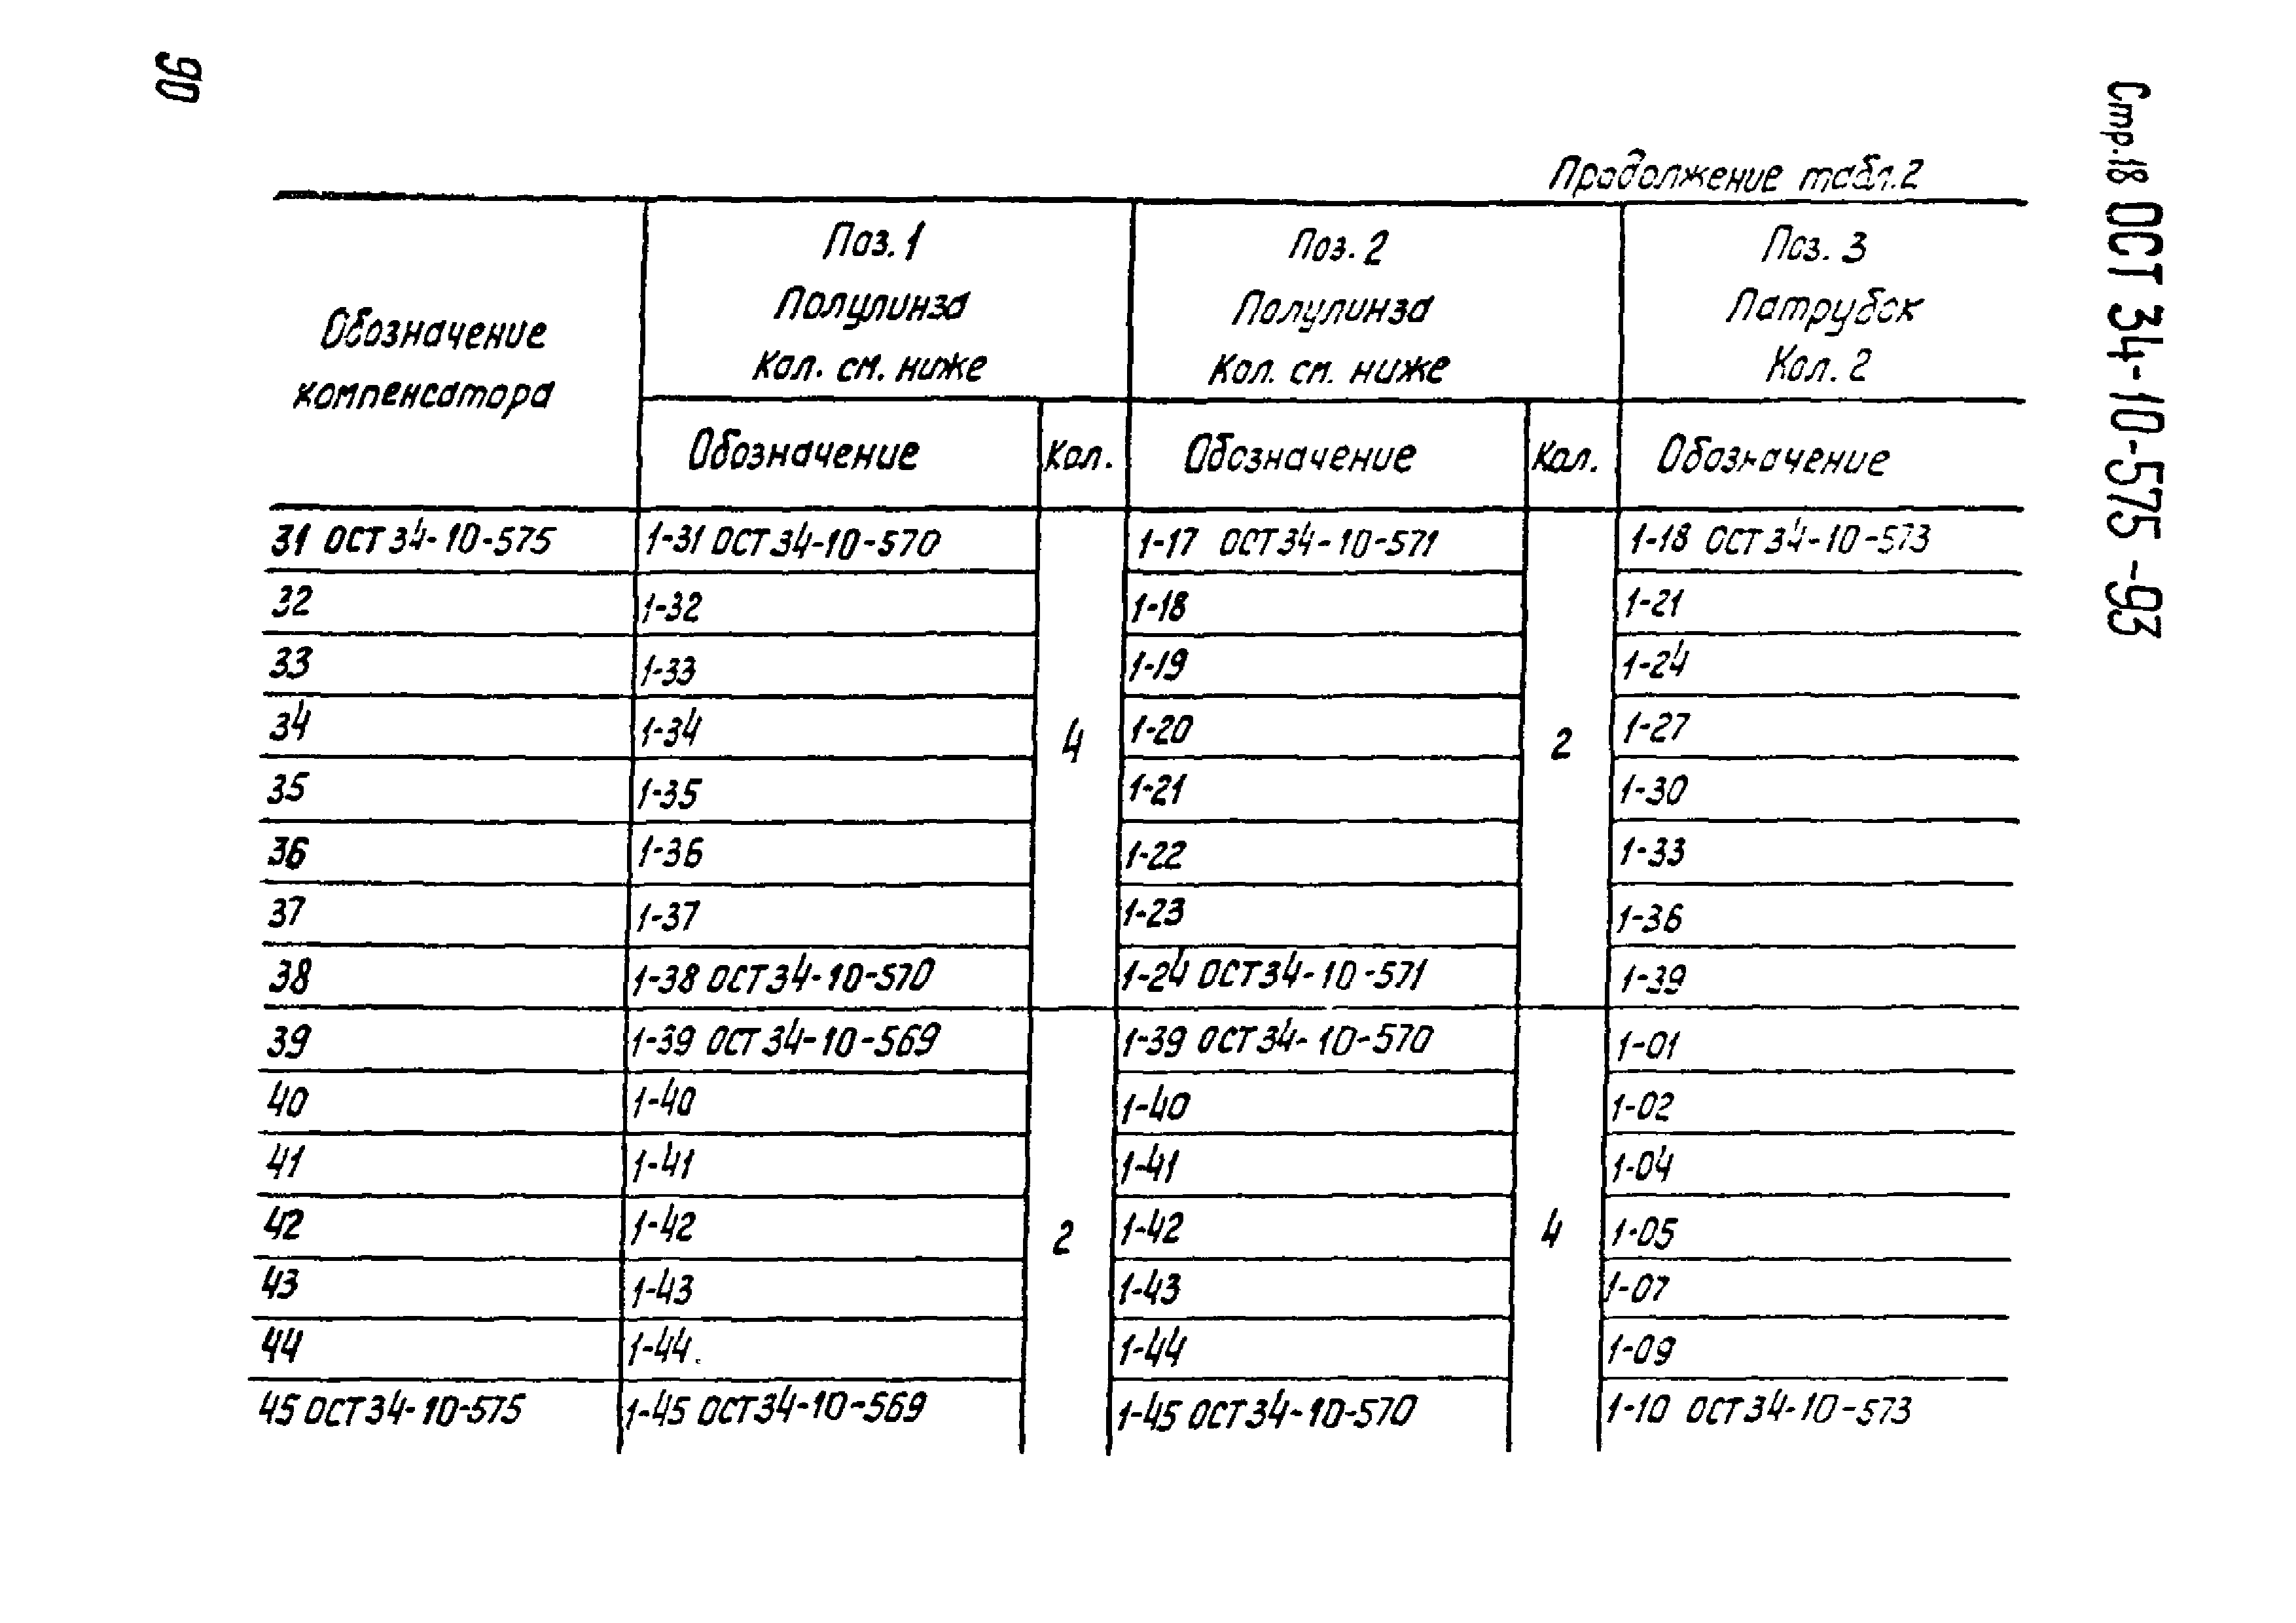 90
Стр. 18 ОСТ 34-10-575-93
Продолжение табл. 2
Обозначение компенсатора
Поз. 1 Полулинза Кол. см. ниже
Поз. 2 Полулинза Кол. см. ниже
Поз. 3 Патрубок Кол. 2
Обозначение Кол. Обозначение Кол. Обозначение
31 ОСТ 34-10-575 1-31 ОСТ 34-10-570 1-17 ОСТ 34-10-571 1-18 ОСТ 34-10-573
32 1-32 1-18 1-21
33 1-33 1-19 1-24
34 1-34 4 1-20 2 1-27
35 1-35 1-21 1-30
36 1-36 1-22 1-33
37 1-37 1-23 1-36
38 1-38 ОСТ 34-10-570 1-24 ОСТ 34-10-571 1-39
39 1-39 ОСТ 34-10-569 1-39 ОСТ 34-10-570 1-01
40 1-40 1-40 1-02
41 1-41 1-41 1-04
42 1-42 2 1-42 4 1-05
43 1-43 1-43 1-07
44 1-44 1-44 1-09
45 ОСТ 34-10-575 1-45 ОСТ 34-10-569 1-45 ОСТ 34-10-570 1-10 ОСТ 34-10-573